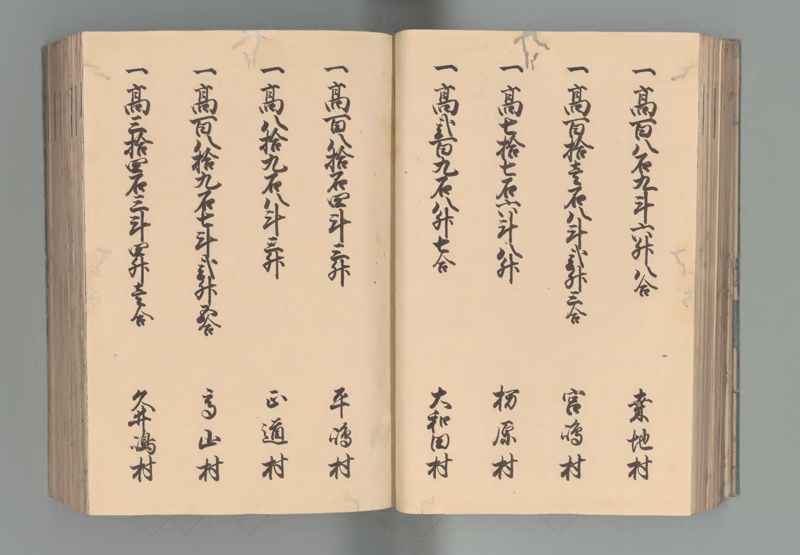 一高百八石九斗六升八合　桒地村
一高百拾壱石八斗弐升三合　宮嶋村
一高七拾七石六斗八升　栃原村
一高弐百九石八升七合　大和田村
一高百八拾石四斗三升　平嶋村
一高八拾九石八斗三升　正道村
一高百八拾九石七斗弐升五合　高山村
一高三拾四石三斗四升壱合　久井嶋村